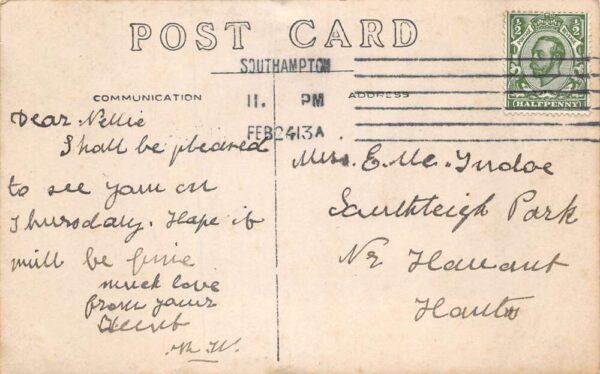 POST CARD
½ ½
HALFPENNY
SOUTHAMPTON
11. PM
FEB 24 13 A
COMMUNICATION
ADDRESS
Dear Nellie
Shall be pleased
to see you on
Thursday. Hope it
will be fine
much love
from your
Aunt
M. W.
Mrs. E. Mc.
Southleigh Park
Nr Havant
Hants